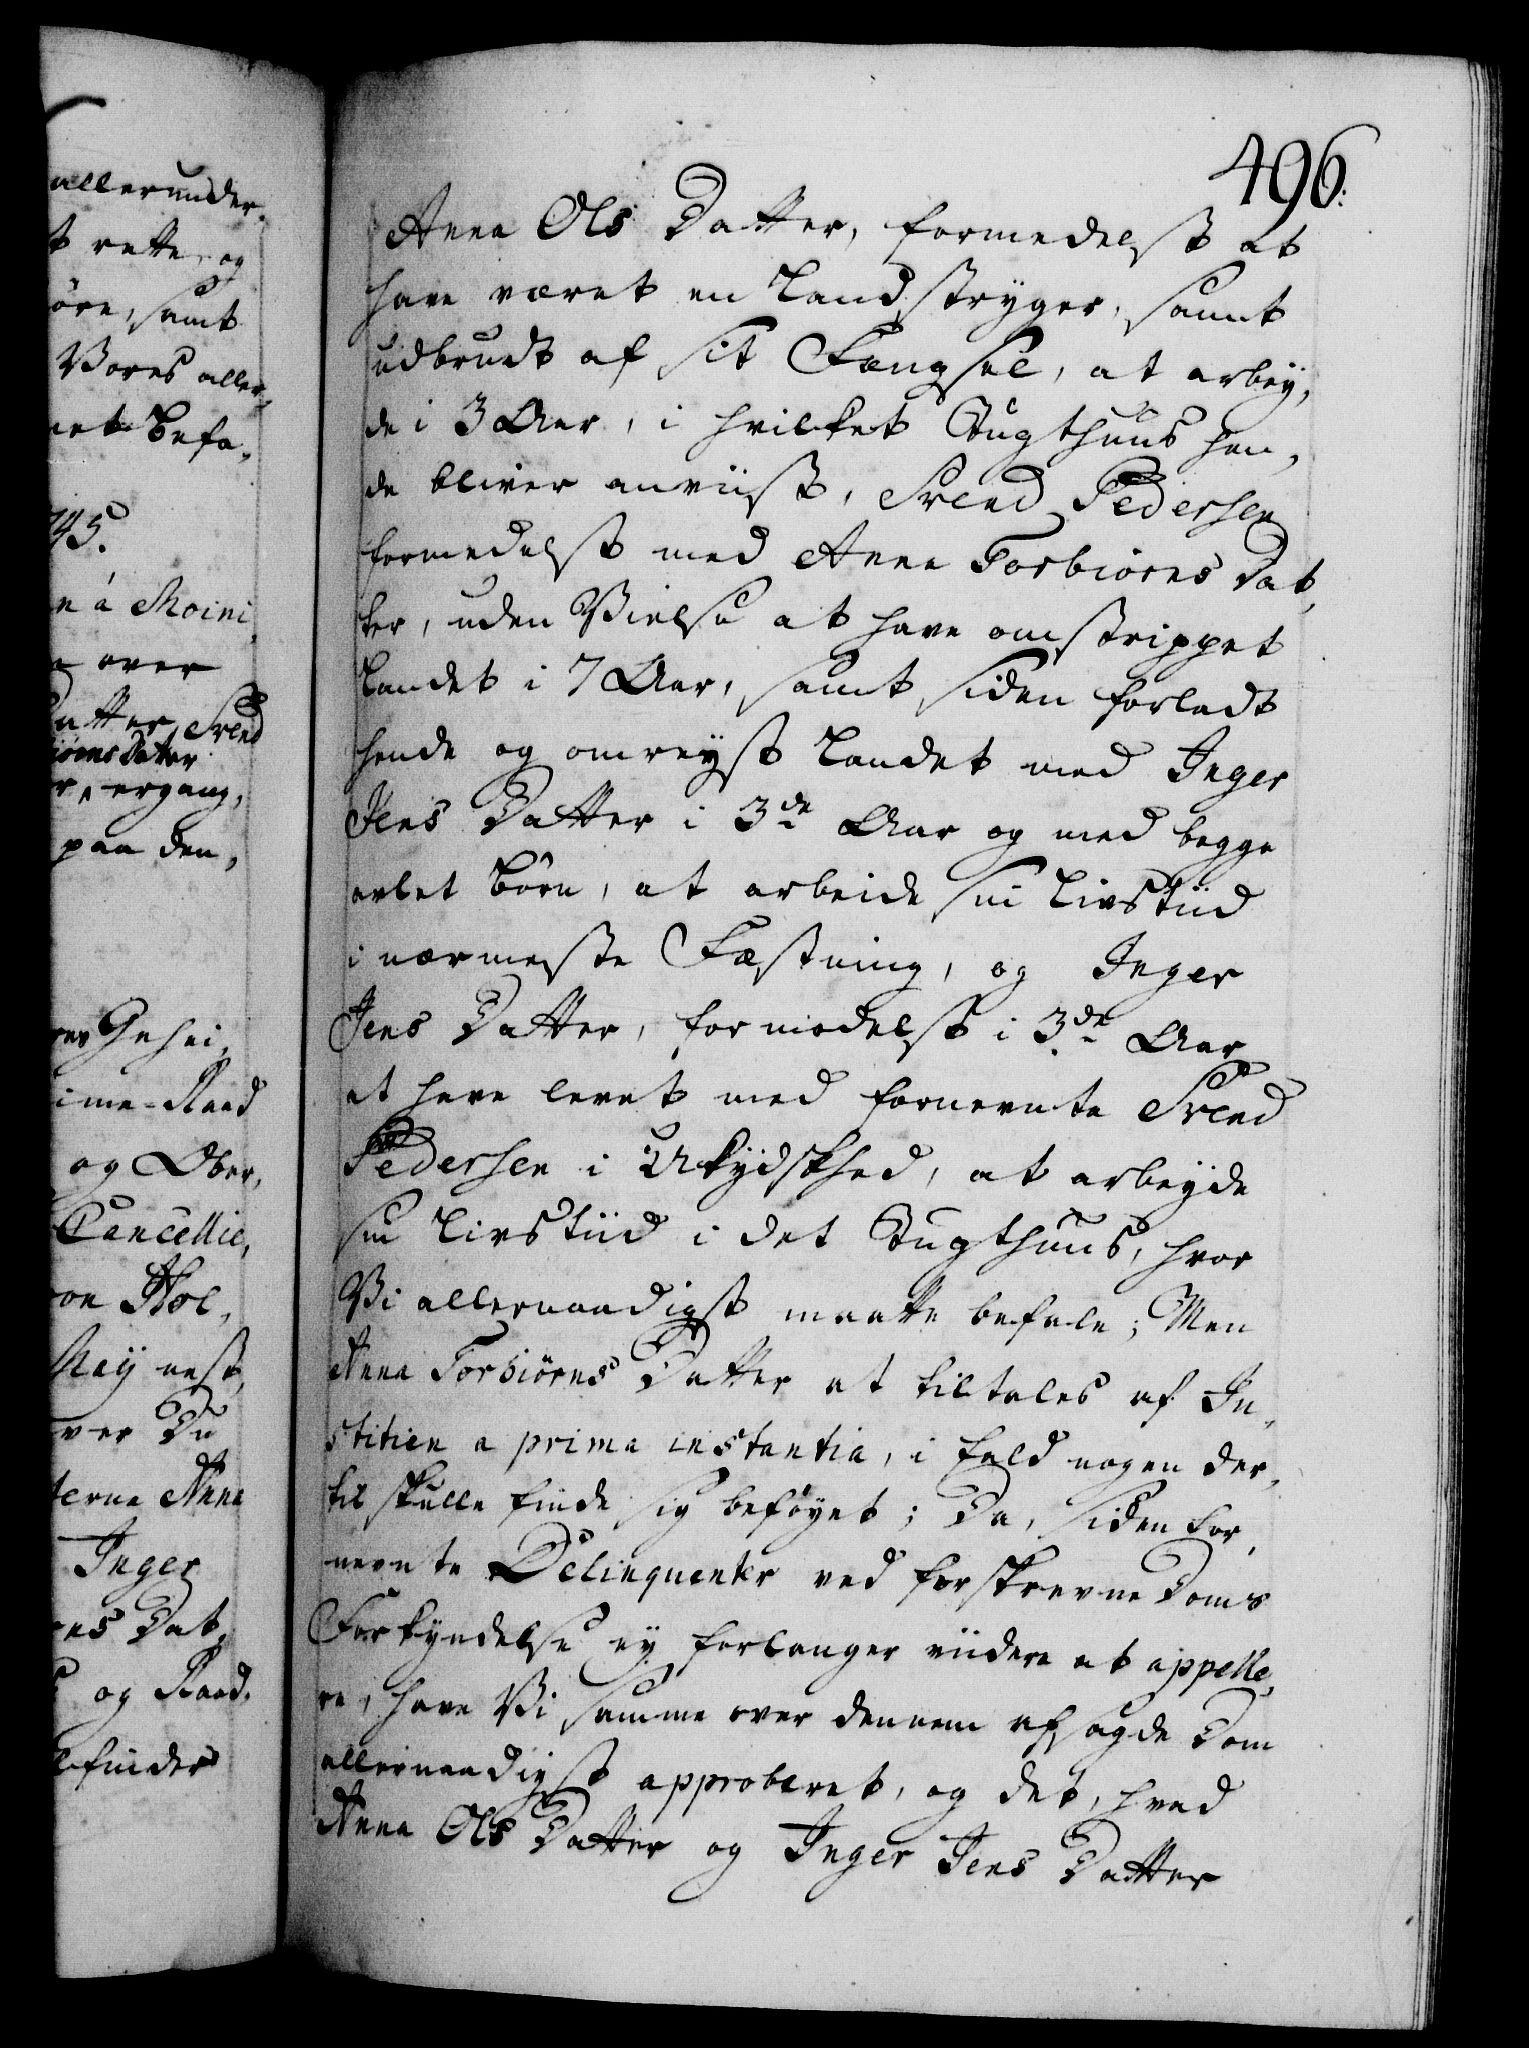 allerunder-
t rette, og
øre, samt
Vores aller-
net Befa-
745.
n á Moini-
n over
Datter, Svend
iørns Datter
r, ergang-
paa den,
res Gehei-
ime-Raad
og Ober-
Cancellie,
on Hol-
Maij nest
ver Du
terne Anne
Inger
nes Dat-
og Raad-
lfinder
496.
Anne Ols Datter, formedelst at
have været en Landstryger, samt
udbrudt af sit Fængsel, at arbey-
de i 3 Aar, i hvilket Tugthuus hen-
de bliver anviist, Svend Pedersen
formedelst med Anne Torbiørns Dat-
ter, uden Vielse at have omstrippet
Landet i 7 Aar, samt siden forladt
hende og omreyst Landet med Inger
Jens Datter i 3de Aar og med begge
avlet Børn, at arbeide sin Livstiid
i nærmeste Fæstning, og Inger
Jens Datter, formedelst i 3de Aar
at have levet med fornevnte Svend
Pedersen i Ukydskhed, at arbeyde
sin Livstiid i det Tugthuus, hvor
Vi allernaadigst maatte befale; Men
Anne Torbiørns Datter at tiltales af Ju-
stitien a prima instantia, i fald nogen der-
til skulle finde sig beføyet; Da, siden for-
nevnte Delinquenter ved forskrevne Doms
Forkyndelse ey forlanger viidere at appelle-
re, have Vi samme over dennem afsagde Dom
allernaadigst approberet, og det, hvad
Anne Ols Datter og Inger Jens Datter